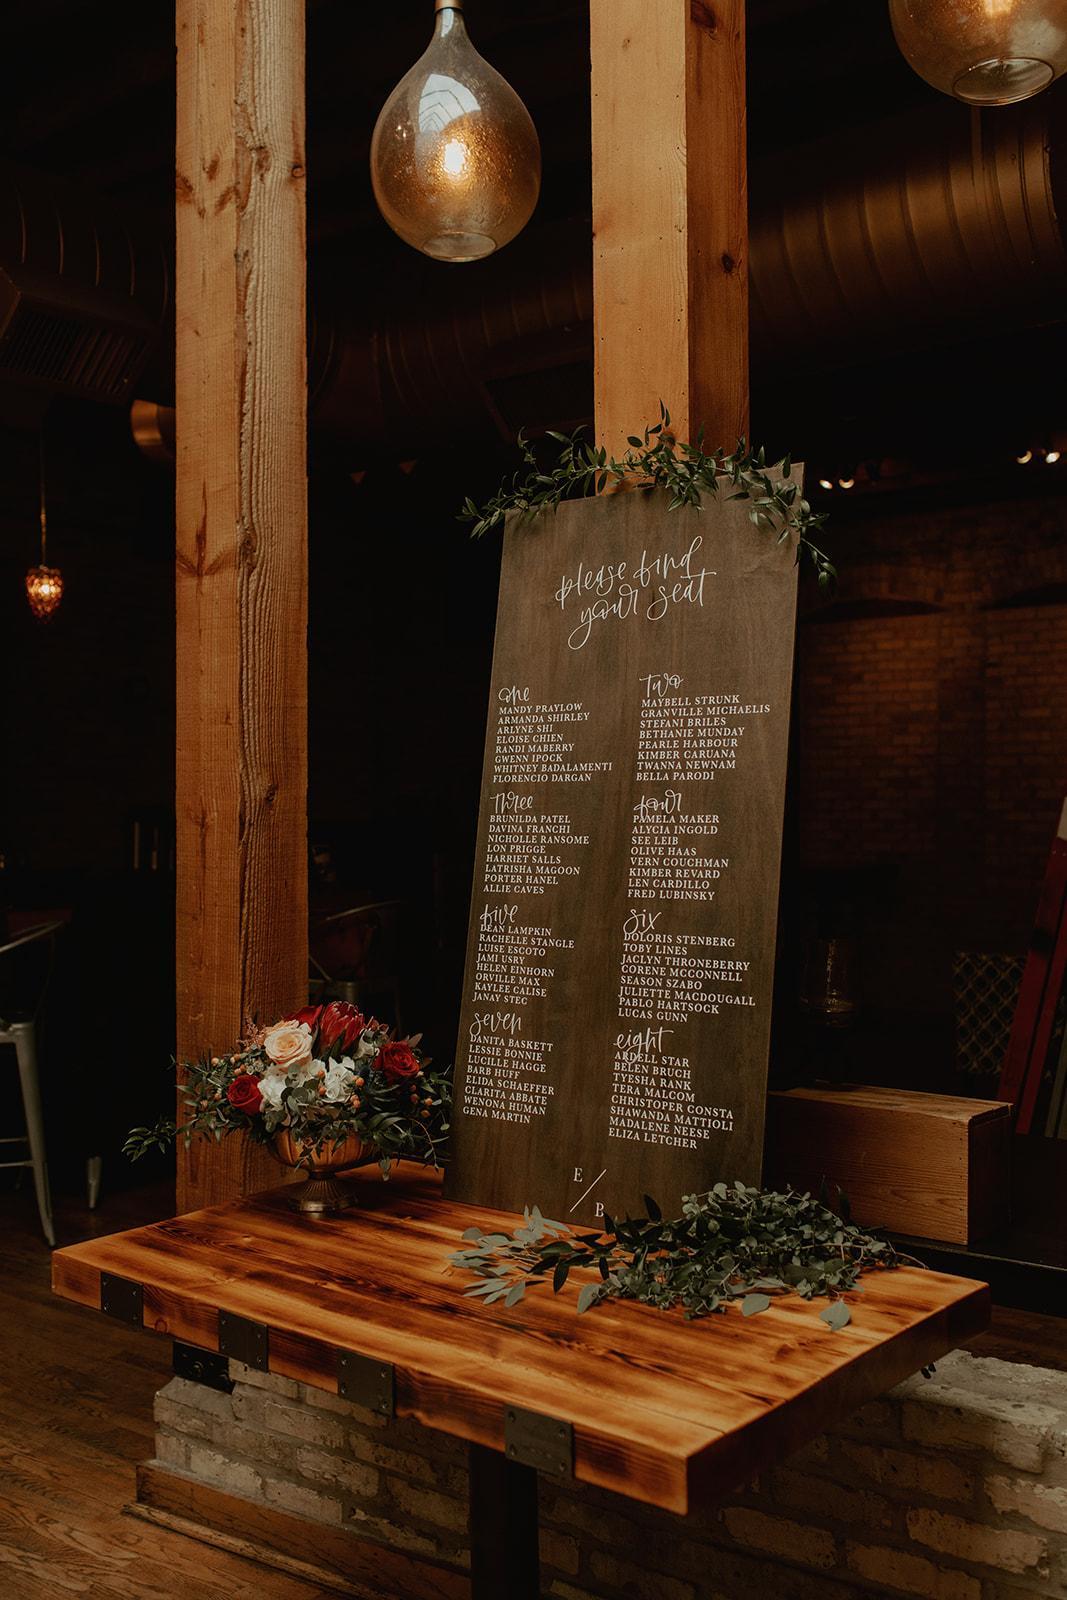 please find
your seat
one
MANDY PRAYLOW
ARMANDA SHIRLEY
ARLYNE SHI
ELOISE CHIEN
RANDI MABERRY
GWENN IPOCK
WHITNEY BADALAMENTI
FLORENCIO DARGAN
two
MAYBELL STRUNK
GRANVILLE MICHAELIS
STEFANI BRILES
BETHANIE MUNDAY
PEARLE HARBOUR
KIMBER CARUANA
TWANNA NEWNAM
BELLA PARODI
three
BRUNILDA PATEL
DAVINA FRANCHI
NICHOLLE RANSOME
LON PRIGGE
HARRIET SALLS
LATRISHA MAGOON
PORTER HANEL
ALLIE CAVES
four
PAMELA MAKER
ALYCIA INGOLD
SEE LEIB
OLIVE HAAS
VERN COUCHMAN
KIMBER REVARD
LEN CARDILLO
FRED LUBINSKY
five
DEAN LAMPKIN
RACHELLE STANGLE
LUISE ESCOTO
JAMI USRY
HELEN EINHORN
ORVILLE MAX
KAYLEE CALISE
JANAY STEC
six
DOLORIS STENBERG
TOBY LINES
JACLYN THRONEBERRY
CORENE MCCONNELL
SEASON SZABO
JULIETTE MACDOUGALL
PABLO HARTSOCK
LUCAS GUNN
seven
DANITA BASKETT
LESSIE BONNIE
LUCILLE HAGGE
BARB HUFF
ELIDA SCHAEFFER
CLARITA ABBATE
WENONA HUMAN
GENA MARTIN
eight
ARDELL STAR
BELEN BRUCH
TYESHA RANK
TERA MALCOM
CHRISTOPER CONSTA
SHAWANDA MATTIOLI
MADALENE NEESE
ELIZA LETCHER
E / B